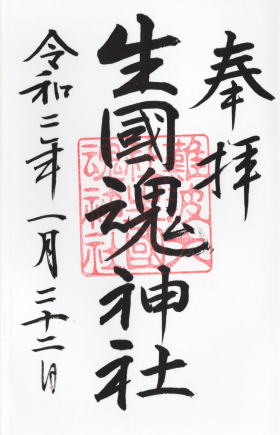 奉拝
生國魂神社
令和二年一月二十二日
難波大
魂神社